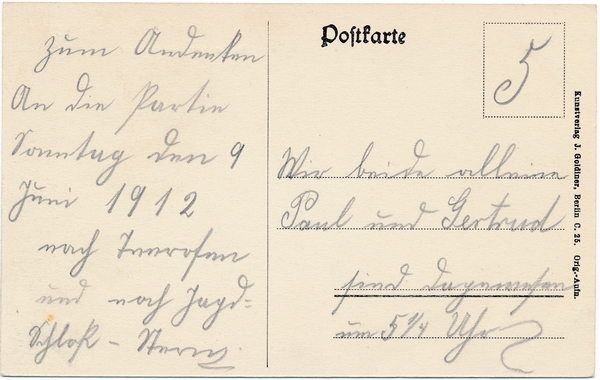 Postkarte
5
zum Andenken
An die Partie
Sonntag den 9
Juni 1912
nach
und nach Jagd=
Schloß - Stern.
Wir beide alleine
Paul und Gertrud
sind dagewesen
um 5 1/4 Uhr
Kunstverlag J. Goldiner, Berlin C. 25. Orig.-Aufn.